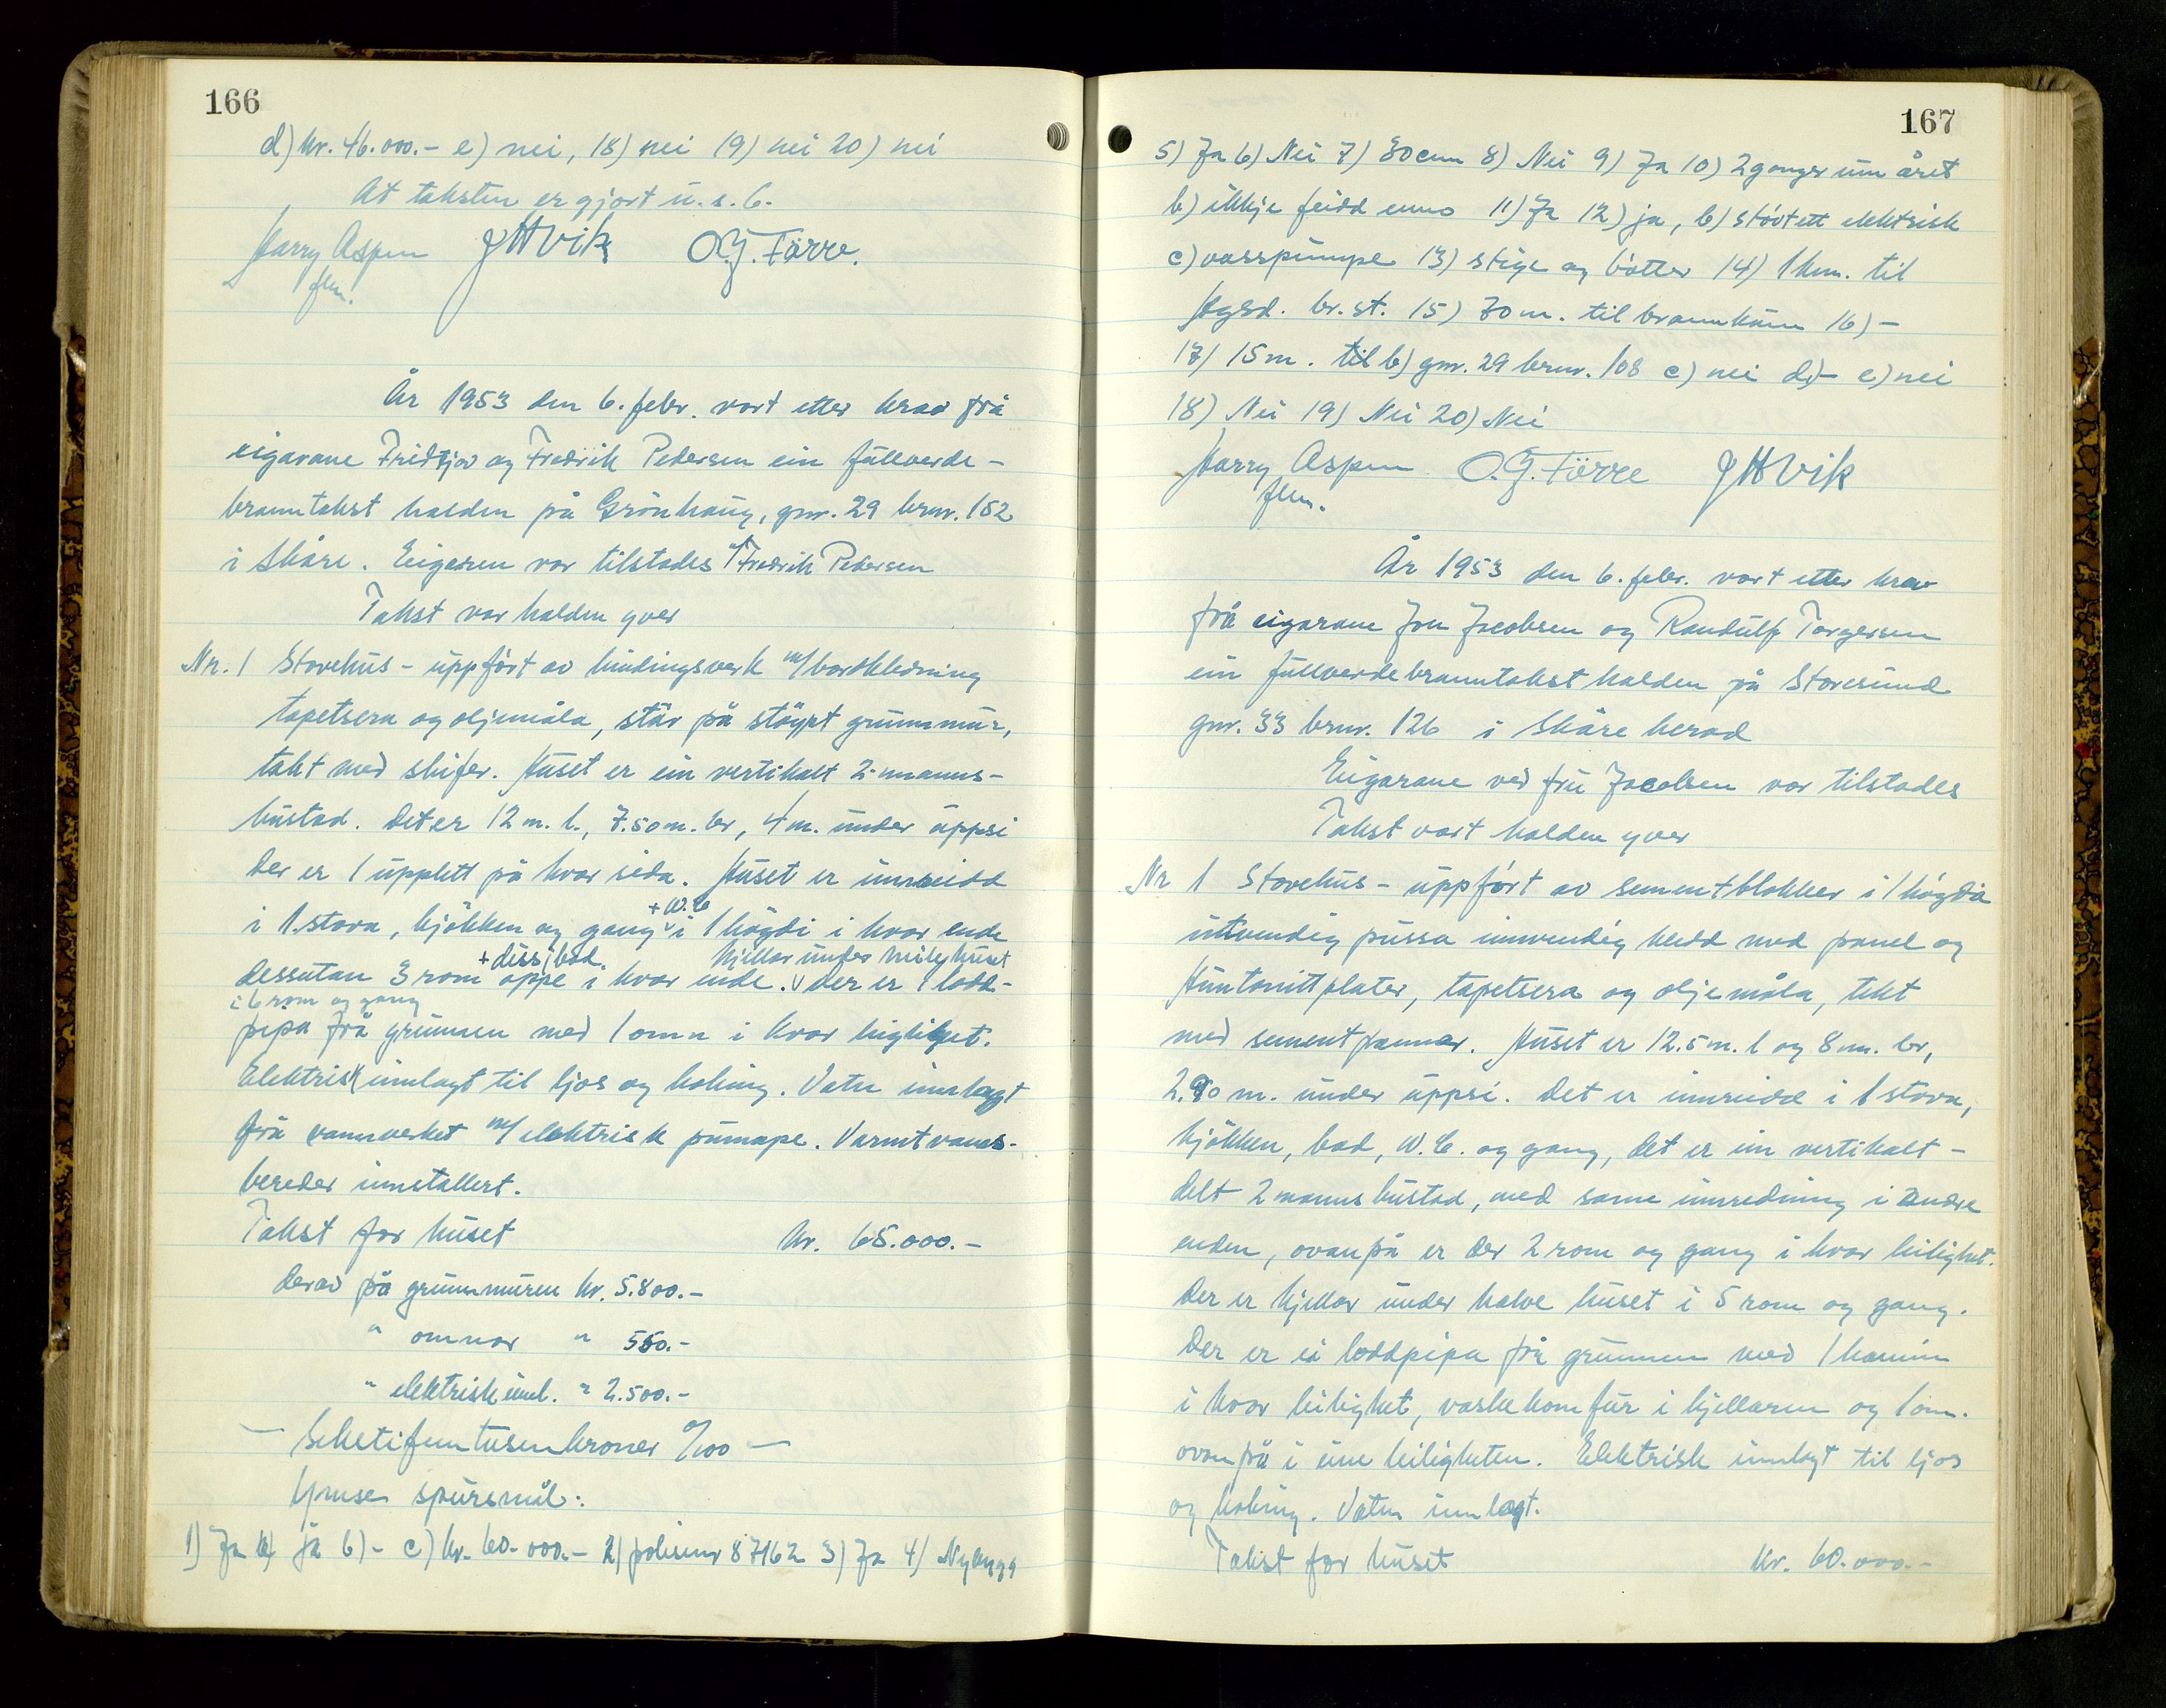 166
d) kr. 46.000.- e) nei, 18) nei 19) nei 20) nei
At taksten er gjort u. s. b.
Harry Aspen J H Vik O.G. Förre.
flm.
År 1953 den 6. febr. vart etter krav frå
eigarane Fridtjov og Fredrik Pedersen ein fullverde-
branntakst halden på Grönhaug, gnr. 29 brnr. 152
i Skåre. Eigaren var tilstades v/ Fredrik Pedersen
Takst var halden yver
Nr. 1 Stovehus - uppfört av bindingsverk m/bordkledning
tapetsera og oljemåla, står på stöypt grunnmur,
takt med skifer. Huset er ein vertikalt 2-manns-
bustad. Det er 12 m. l., 7.50 m. br, 4 m. under uppsi
Der er 1 upplett på kvar sida. Huset er innreidd
+ W.C
i 1. stova, kjökken og gang i 1 högdi i kvar ende
+ diss/bad. kjellar under heileg huset
dessutan 3 rom oppe i kvar ende. v Der er 1 lodd-
i 6 rom og gang
pipa frå grunnen med 1 omn i kvar leiglighet.
Elektrisk innlagt til ljos og koking. Vatn innlagt
frå vannverket m/ elektrisk pumpe. Varmtvanns-
bereder innstallert.
Takst for huset kr. 65.000.-
Derav på grunnmuren kr. 5.800.-
" omnar " 550.-
" elektrisk innl. " 2.500.-
— Sekstifemtusenkroner 0/100 —
Ymse spursmål:
1) Ja a) ja b) - c) kr. 60.000.- 2) polisenr 87162 3) Ja 4) Nybygg
167
5) Ja 6) Nei 7) 30 cm 8) Nei 9) Ja 10) 2 gonger um året
b) ikkje feidd enno 11) Ja 12) ja, b) stövtett elektrisk
c) vasspumpe 13) stige og bötter 14) 1 km. til
Hgsd. br. st. 15) 70 m. til brannkum 16) -
17) 15 m. til b) gnr. 29 brnr. 108 c) nei d) - e) nei
18) Nei 19) Nei 20) Nei
Harry Aspen O.G. Förre J H Vik
flm.
År 1953 den 6. febr. vart etter krav
frå eigarane Jon Jacobsen og Randulf Torgersen
ein fullverdebranntakst halden på Storesund
gnr. 33 brnr. 126 i Skåre herad
Eigarane ved fru Jacobsen var tilstades
Takst vart halden yver
Nr 1 Stovehus - uppfört av sementblokker i 1 högda
utvendig pussa innvendig kledd med panel og
Huntonittplater, tapetsera og oljemåla, tekt
med sementpannar. Huset er 12.5 m. l og 8 m. br,
2.90 m. under uppsi. Det er innreidd i 1 stova,
kjökken, bad, W.C. og gang, det er ein vertikalt-
delt 2 manns bustad, med same innredning i andre
enden, ovanpå er der 2 rom og gang i kvar leilighet.
Der er kjellar under halve huset i 5 rom og gang.
Der er ei loddpipa frå grunnen med 1 kamin
i kvar leilighet, vaskekomfur i kjellaren og 1 omn.
ovanpå i eine leiligheten. Elektrisk innlagt til ljos
og koking. Vatn innlagt.
Takst for huset kr. 60.000.-